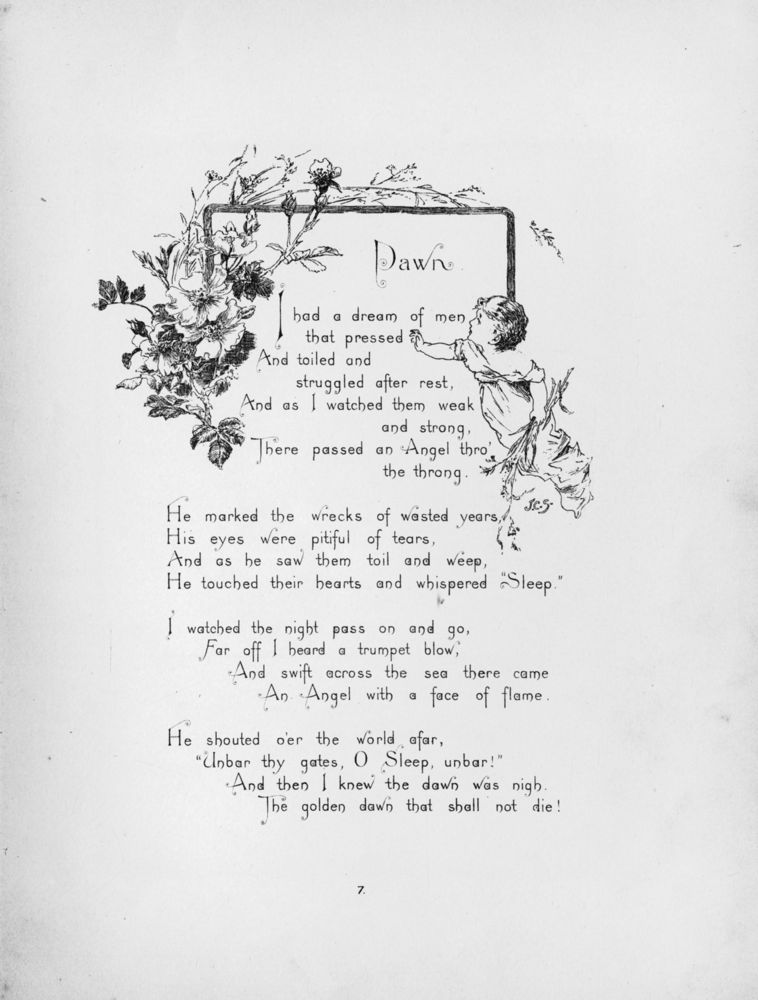 Dawn.
I had a dream of men
that pressed
And toiled and
struggled after rest,
And as I watched them weak
and strong,
There passed an Angel thro'
the throng.
J.C.S.
He marked the wrecks of wasted years,
His eyes were pitiful of tears,
And as he saw them toil and weep,
He touched their hearts and whispered "Sleep."
I watched the night pass on and go,
Far off I heard a trumpet blow,
And swift across the sea there came
An Angel with a face of flame.
He shouted o'er the world afar,
"Unbar thy gates, O Sleep, unbar!"
And then I knew the dawn was nigh.
The golden dawn that shall not die!
7.